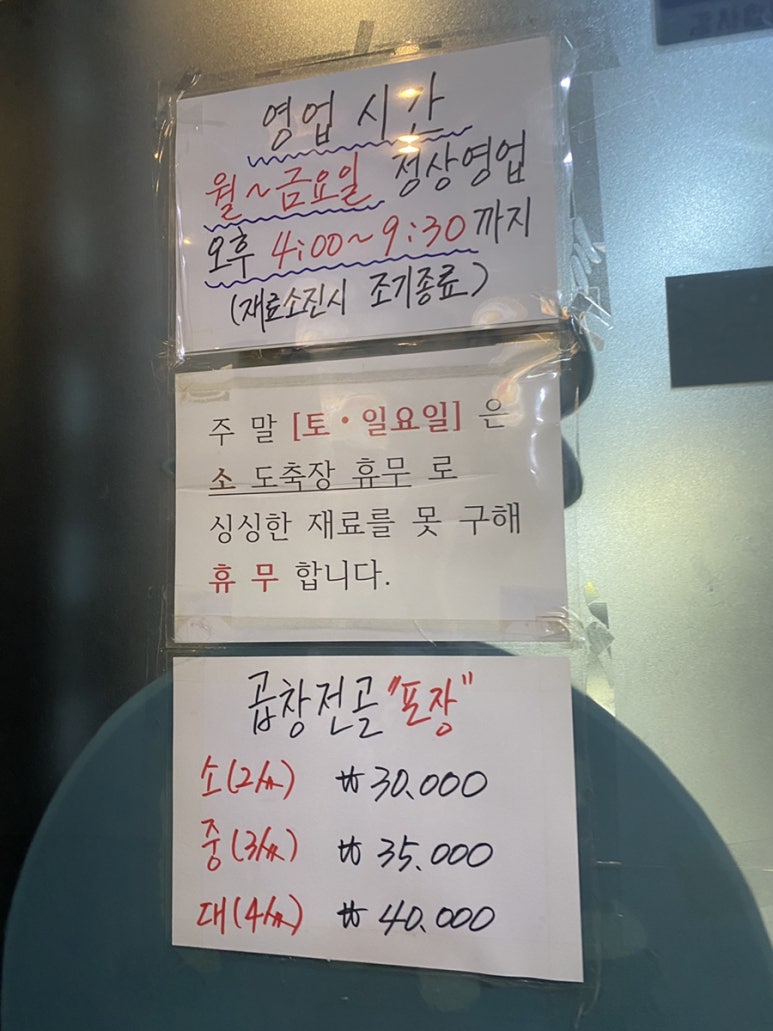 영업시간
월~금요일 정상영업
오후 4:00~9:30까지
(재료소진시 조기종료)
주 말 [토·일요일] 은
소 도축장 휴무 로
싱싱한 재료를 못 구해
휴 무 합니다.
곱창전골 "포장"
소(2人) ₩30.000
중(3人) ₩35.000
대(4人) ₩40.000